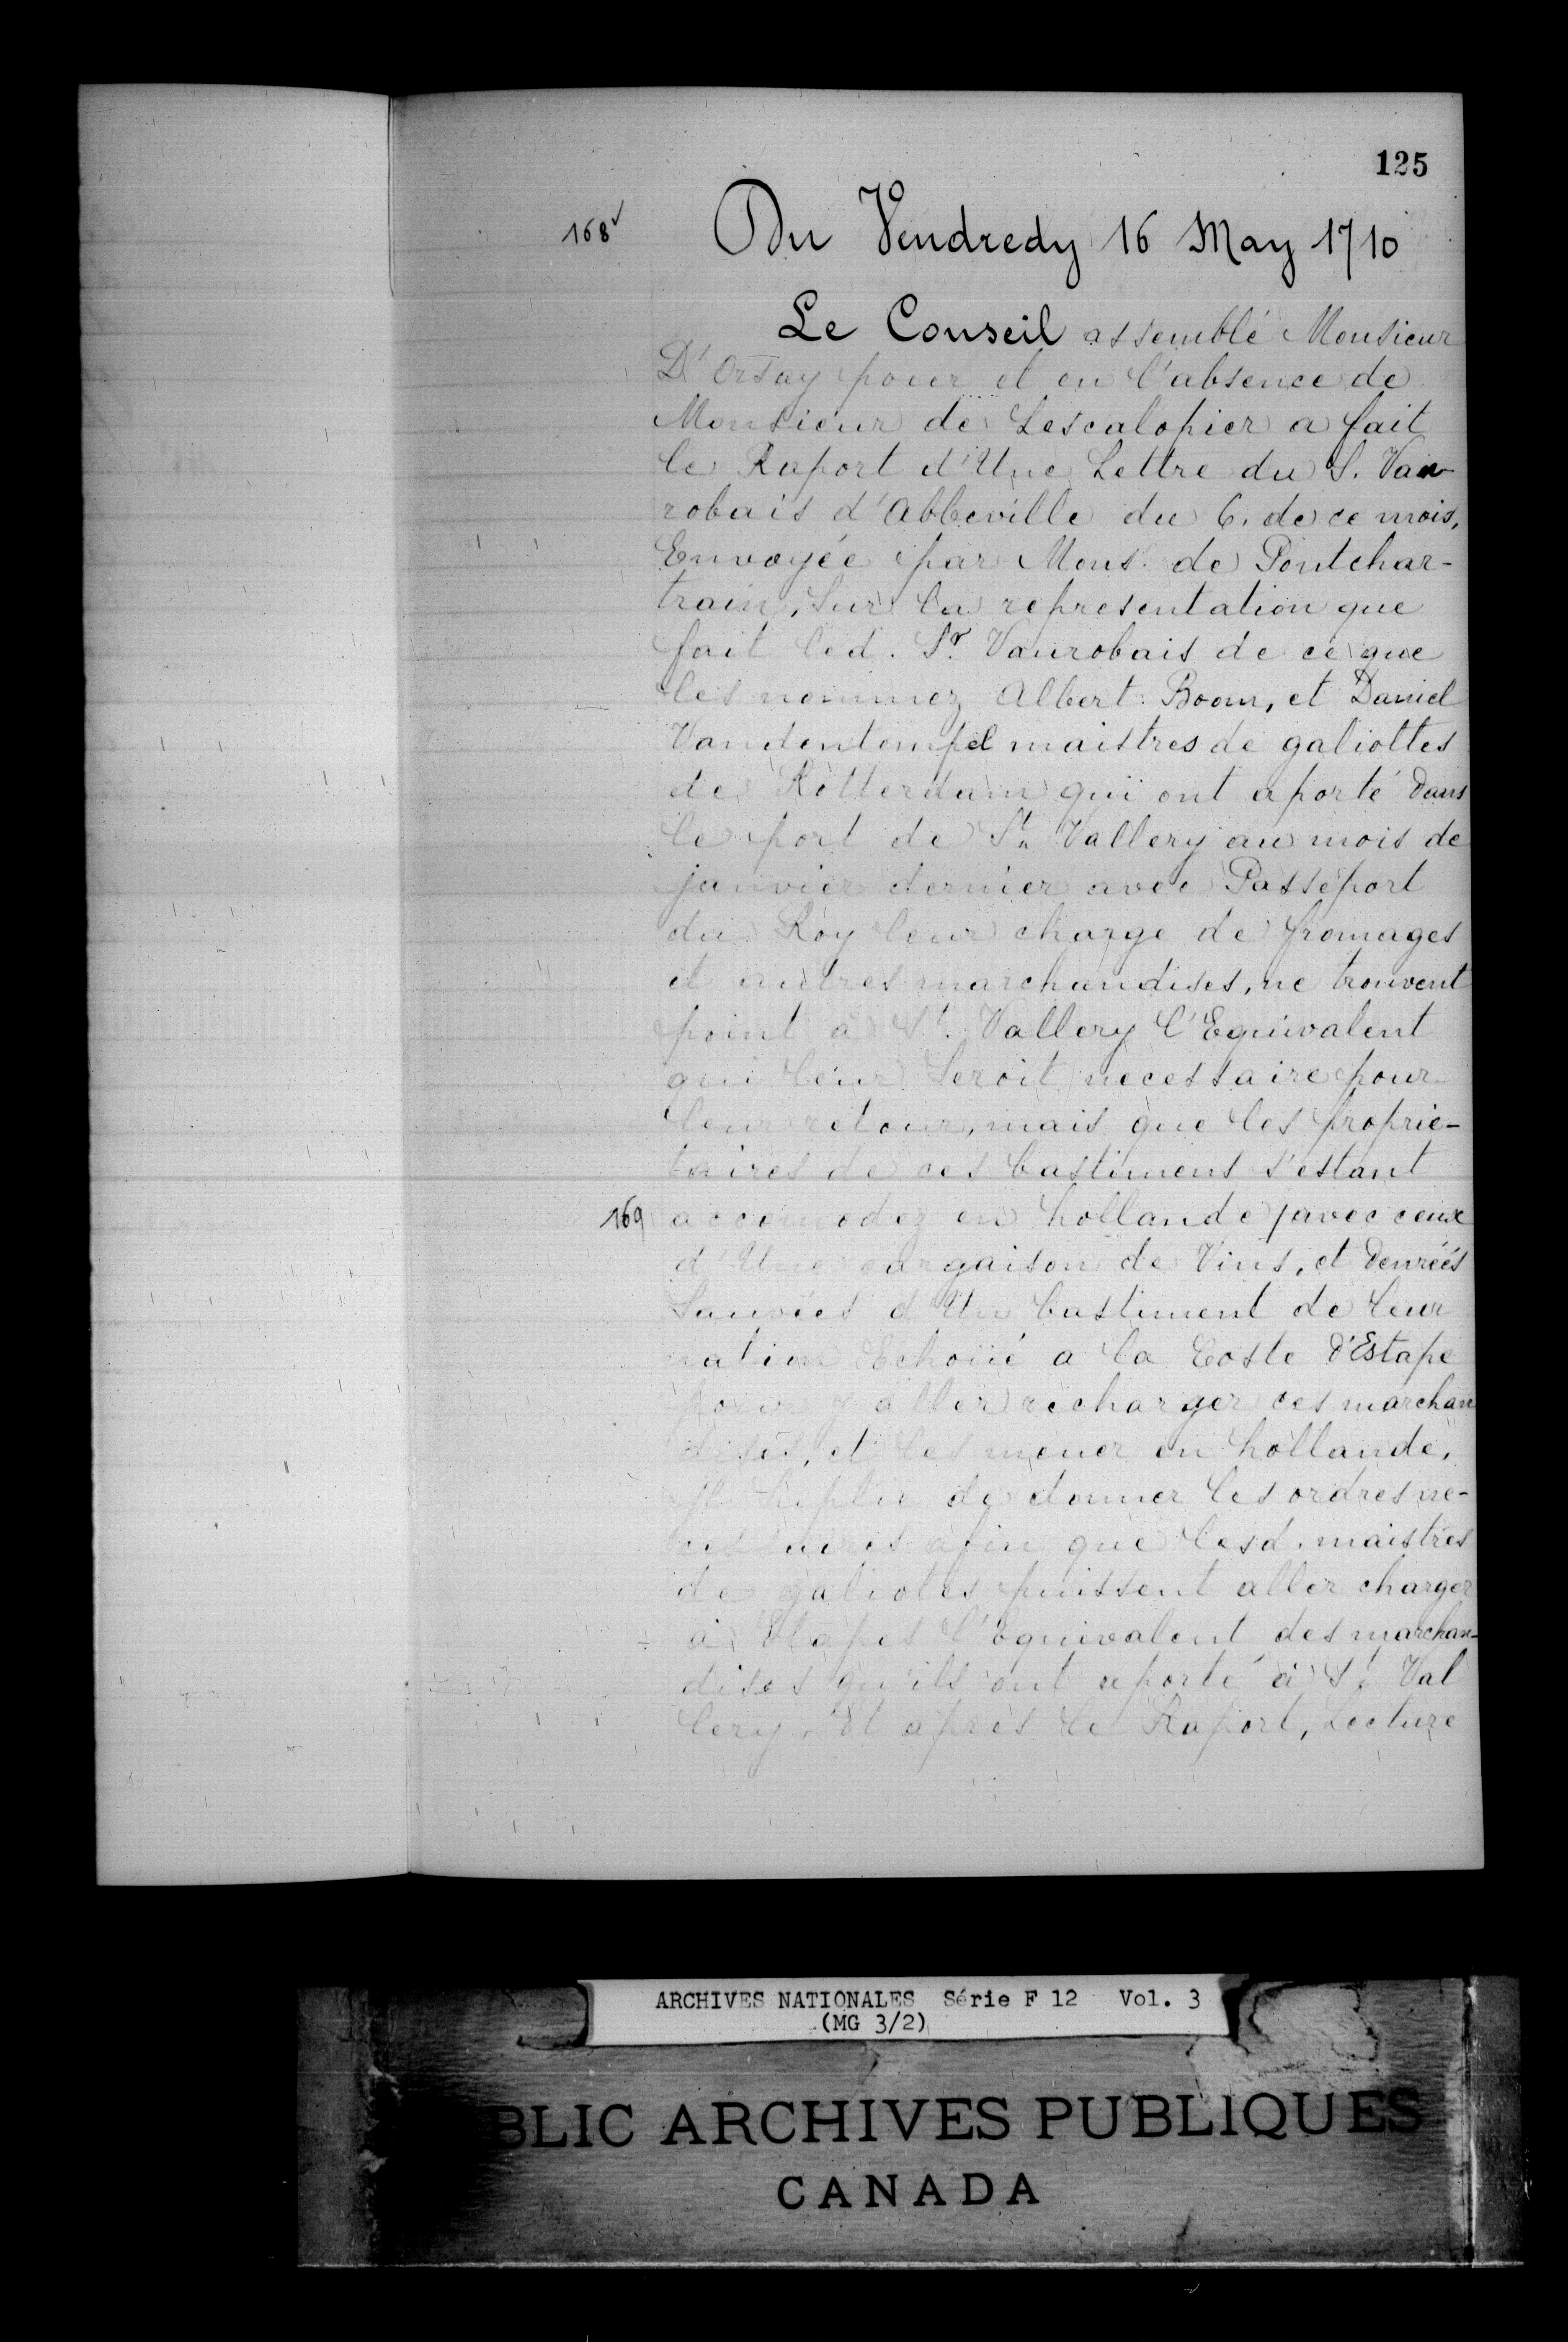 125
168v Du Vendredy 16 May 1710
Le Conseil assemblé Monsieur
D'Orsay pour et en l'absence de
Monsieur de Lescalopier a fait
le Raport d'Une Lettre du S. Van-
robais d'Abbeville du 6. de ce mois,
Envoyée par Mons. de Pontchar-
train, Sur la representation que
fait led. Sr. Vanrobais de ce que
les nommez Albert Boom, et Daniel
Vandentempel maistres de galiottes
de Rotterdam qui ont aporté dans
le port de St. Vallery au mois de
janvier dernier avec Passeport
du Roy leur charge de fromages
et autres marchandises, ne trouvent
point a St. Vallery l'Equivalent
qui leur Seroit necessaire pour
leur retour, mais que les proprie-
taires de ces bastimens s'estant
169 accomodez en hollande /avec ceux
d'Une cargaison de Vins, et denrées
Sauvées d'Un bastiment de leur
nation Echoüé a la Coste d'Estape
pour y aller recharger ces marchan
dises, et les mener en hollande,
Il Suplie de donner les ordres ne-
cessaires afin que lesd. maistres
de galiotes puissent aller charger
à Etapes l'Equivalent des marchan-
dises qu'ils ont aporté à St. Val
lery. Et après le Raport, Lecture
ARCHIVES NATIONALES Série F 12 Vol. 3
(MG 3/2)
BLIC ARCHIVES PUBLIQUES
CANADA